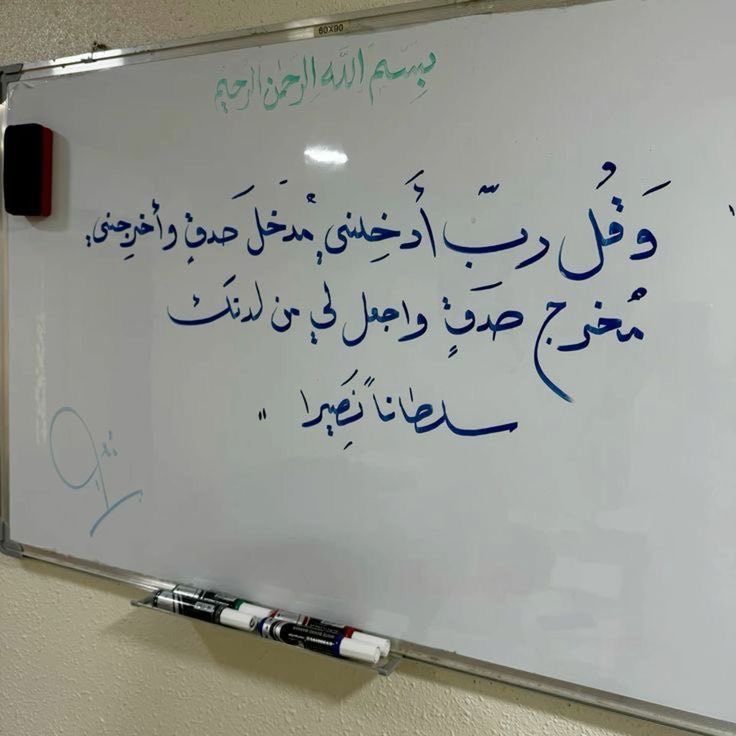 60X90
بِسْمِ اللَّهِ الرَّحمن الرحيم
وَقُل ربّ أَدخِلني مُدخَلَ صدقٍ وأخرِجني
مُخرج صدقٍ واجعل لي من لدنك
سلطاناً نَصِيرا "